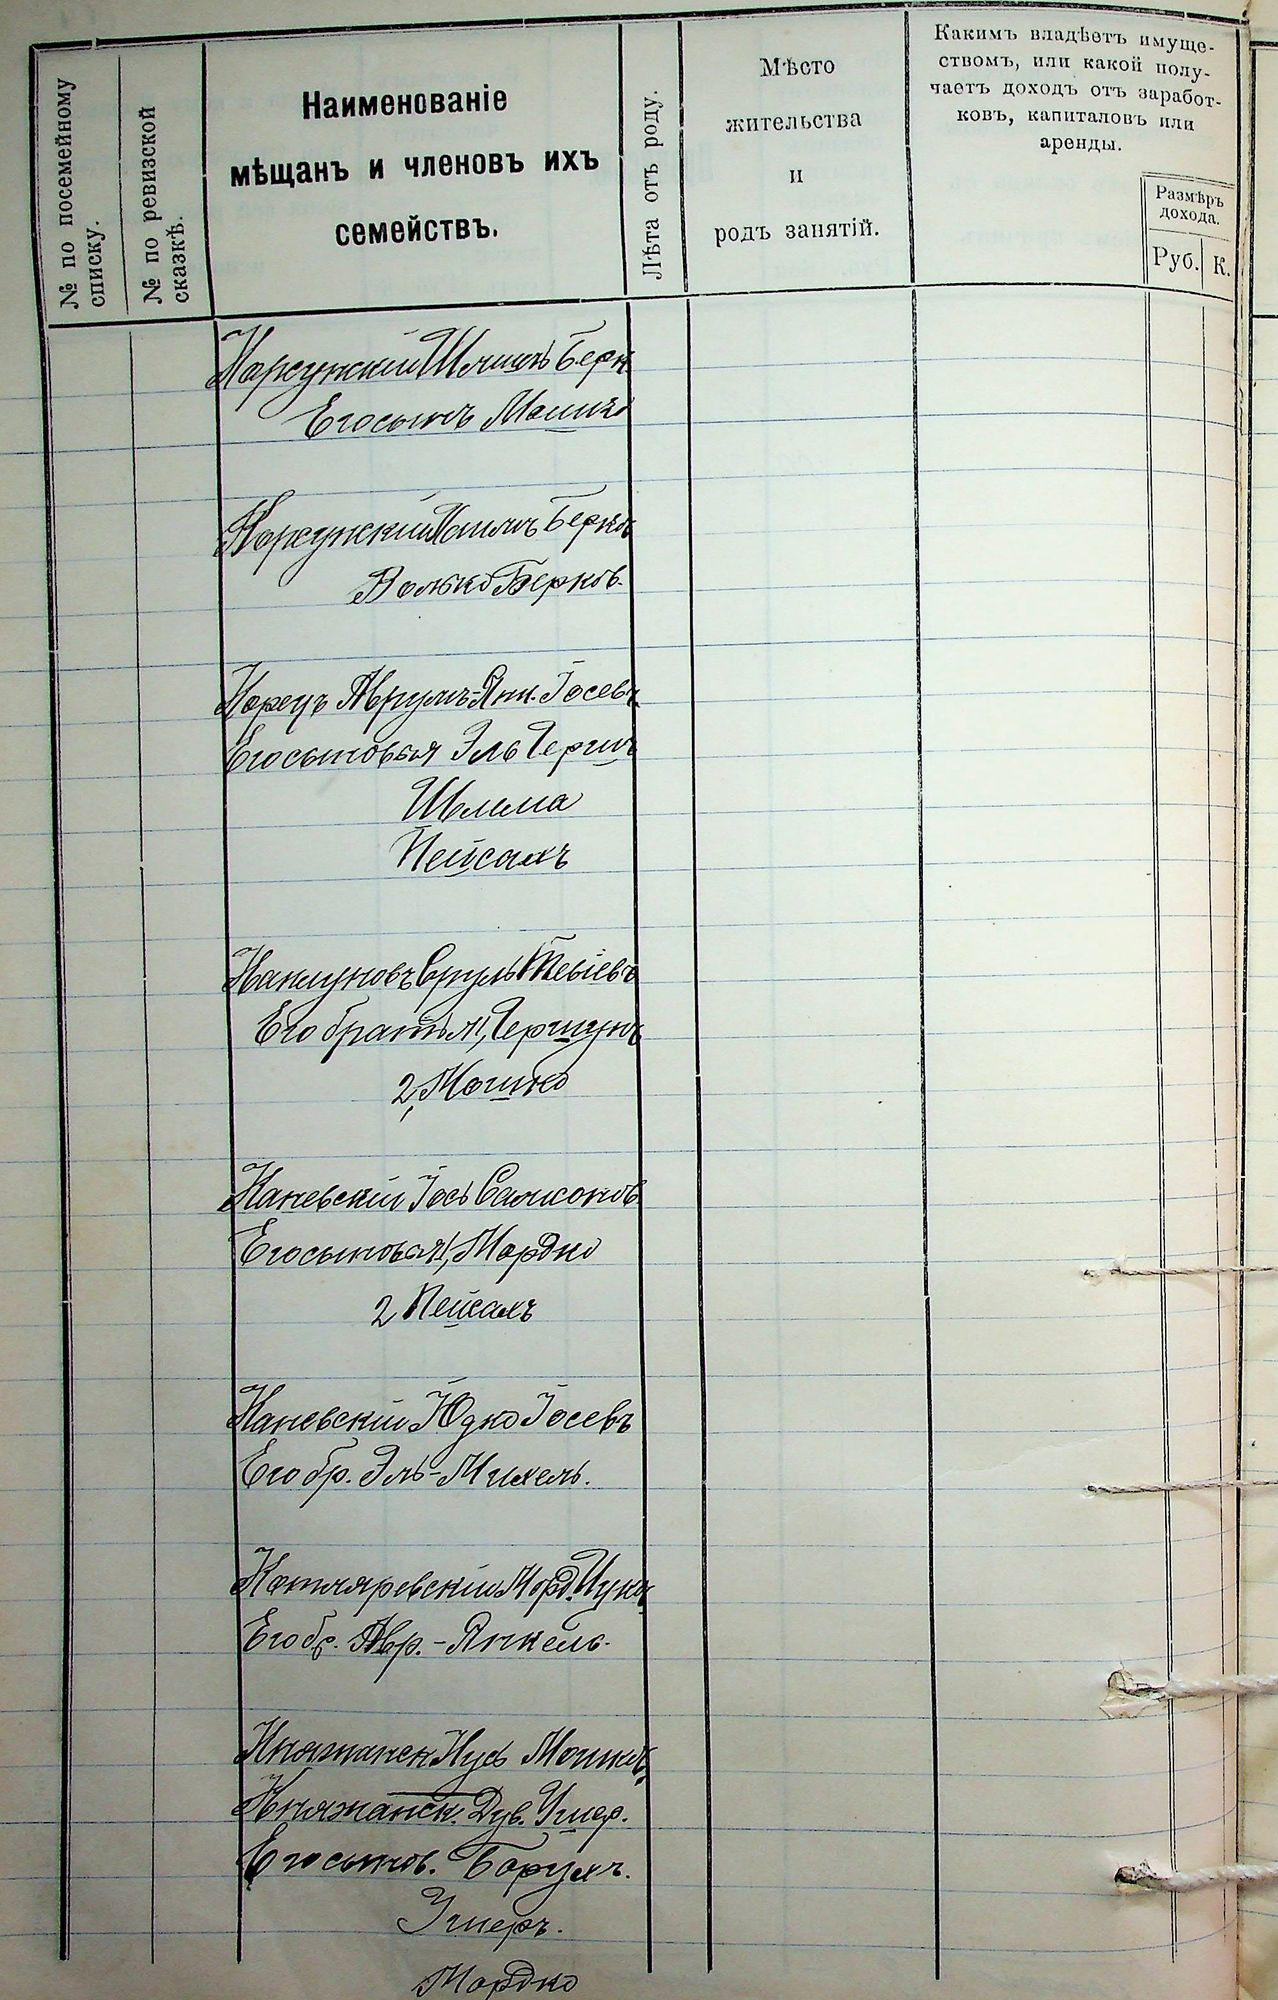 № по посемейному
списку.
№ по ревизской
сказкѣ.
Наименованіе
мѣщанъ и членовъ ихъ
семействъ.
Лѣта отъ роду.
Мѣсто
жительства
и
родъ занятій.
Какимъ владѣетъ имуще-
ствомъ, или какой полу-
чаетъ доходъ отъ заработ-
ковъ, капиталовъ или
аренды.
Размѣръ
дохода.
Руб.
К.
Корсунскій Берк
Его сынъ Мошко
Корсунскій Хаимъ Берков
Волько Берков.
Корецъ Аврумъ-Янк. Іосевъ
Его сыновья Эль Герши
Шлема
Пейсахъ
Каплуновъ Сруль Тевіевъ
Его братья 1, Гершунъ
2, Мошко
Каневскій Іось Самсонов
Его сыновья 1, Мордко
2 Пейсахъ
Каневскій Юдко Іосевъ
Его бр. Эль-Михель.
Котляревскій Морд. Ицк
Его бр. Авр.-Янкель.
Княжанск Нусь Мошков
Княжанск. Дув. Ушер.
Его сынов. Борухъ.
Ушеръ.
Мордко